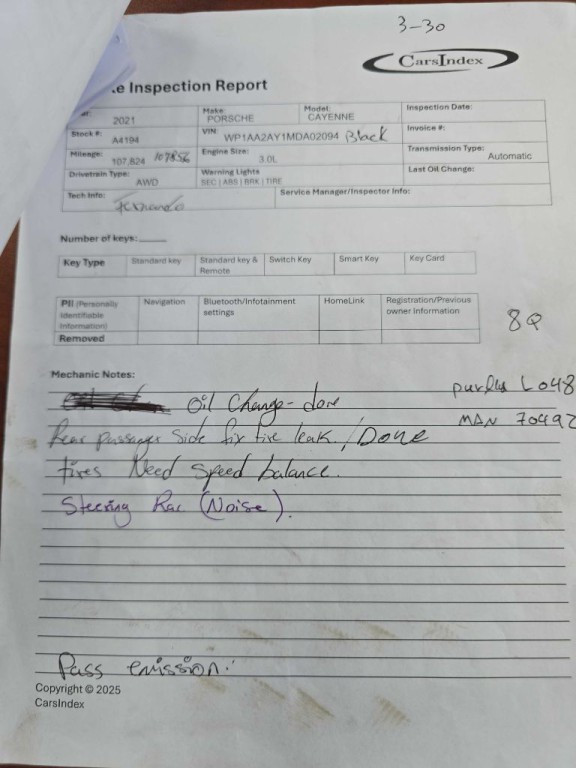 3-30
CarsIndex
e Inspection Report
2021
Make: PORSCHE
Model: CAYENNE
Inspection Date:
Stock #: A4194
VIN: WP1AA2AY1MDA02094 Black
Invoice #:
Mileage: 107,824 107856
Engine Size: 3.0L
Transmission Type: Automatic
Drivetrain Type: AWD
Warning Lights
SEC | ABS | BRK | TIRE
Last Oil Change:
Tech Info: Fernando
Service Manager/Inspector Info:
Number of keys:
Key Type Standard key Standard key & Remote Switch Key Smart Key Key Card
PII (Personally Identifiable Information) Navigation Bluetooth/Infotainment settings HomeLink Registration/Previous owner Information
Removed
8Q
Mechanic Notes:
L048
Oil Change - done
MAN 70492
Rear passenger side fix tire leak. / Done
tires Need Speed balance.
Steering Rac (Noise).
Pass emission.
Copyright © 2025
CarsIndex